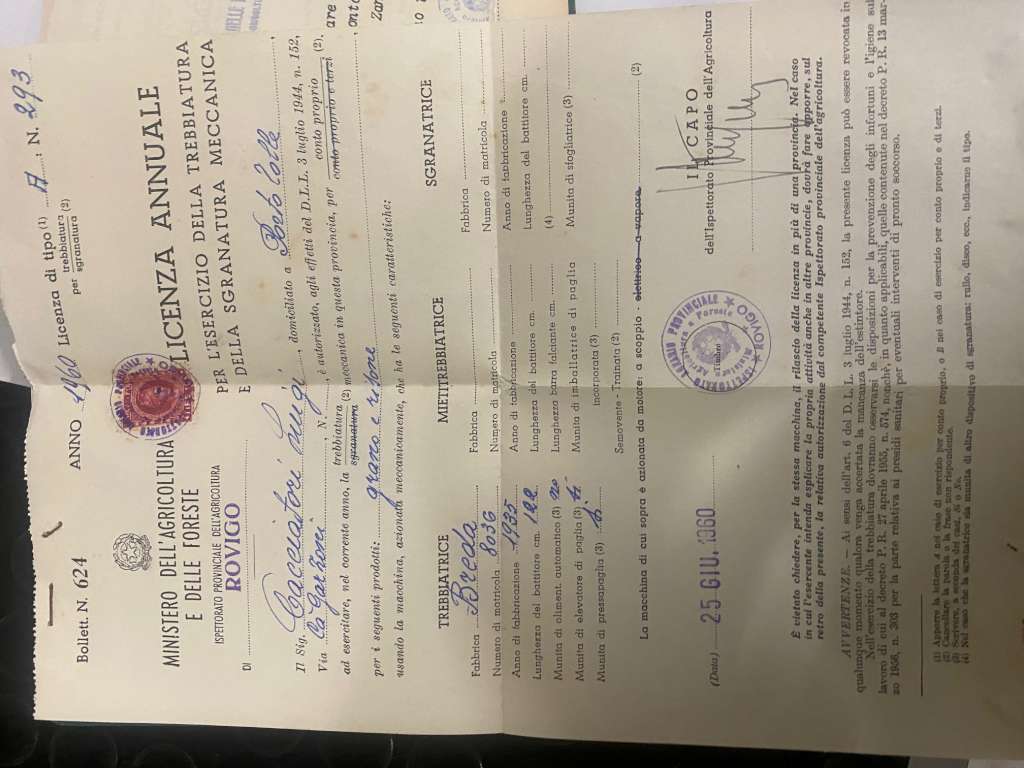 Bollett. N. 624
ANNO 1960 Licenza di tipo (1) A; N. 293
per trebbiatura (2)
sgranatura
MINISTERO DELL'AGRICOLTURA
E DELLE FORESTE
ISPETTORATO PROVINCIALE DELL'AGRICOLTURA
DI ROVIGO
LICENZA ANNUALE
PER L'ESERCIZIO DELLA TREBBIATURA
E DELLA SGRANATURA MECCANICA
Il Sig. Cacciatori Luigi, domiciliato a Porto Tolle,
Via, N., è autorizzato, agli effetti del D.L.L. 3 luglio 1944, n. 152,
ad esercitare, nel corrente anno, la trebbiatura (2) meccanica in questa provincia, per conto proprio (2),
sgranatura conto proprio e terzi
per i seguenti prodotti: grano e risone
usando la macchina, azionata meccanicamente, che ha le seguenti caratteristiche:
TREBBIATRICE
Fabbrica Breda
Numero di matricola 8036
Anno di fabbricazione 1935
Lunghezza del battitore cm. 122
Munita di aliment. automatico (3) no
Munita di elevatore di paglia (3) si
Munita di pressapaglia (3) si
MIETITREBBIATRICE
Fabbrica
Numero di matricola
Anno di fabbricazione
Lunghezza del battitore cm.
Lunghezza barra falciante cm.
Munita di imballatrice di paglia
incorporata (3)
Semovente - Trainata (2)
SGRANATRICE
Fabbrica
Numero di matricola
Anno di fabbricazione
Lunghezza del battitore cm.
(4)
Munita di sfogliatrice (3)
La macchina di cui sopra è azionata da motore: a scoppio - elettrico - a vapore (2)
(Data) 25 GIU. 1960
IL CAPO
dell'Ispettorato Provinciale dell'Agricoltura
È vietato chiedere, per la stessa macchina, il rilascio della licenza in più di una provincia. Nel caso
in cui l'esercente intenda esplicare la propria attività anche in altre provincie, dovrà fare apporre, sul
retro della presente, la relativa autorizzazione dal competente Ispettorato provinciale dell'agricoltura.
AVVERTENZE. — Ai sensi dell'art. 6 del D. L. L. 3 luglio 1944, n. 152, la presente licenza può essere revocata in
qualunque momento qualora venga accertata la mancanza dell'estintore.
Nell'esercizio della trebbiatura dovranno osservarsi le disposizioni per la prevenzione degli infortuni e l'igiene sul
lavoro di cui al decreto P. R. 27 aprile 1955, n. 574, nonchè, in quanto applicabili, quelle contenute nel decreto P. R. 13 mar-
zo 1956, n. 303 per la parte relativa ai presidi sanitari per eventuali interventi di pronto soccorso.
(1) Apporre la lettera A nel caso di esercizio per conto proprio, o B nel caso di esercizio per conto proprio e di terzi.
(2) Cancellare la parola o la frase non rispondente.
(3) Scrivere, a seconda dei casi, Sì o No.
(4) Nel caso che la sgranatrice sia munita di altro dispositivo di sgranatura: rullo, disco, ecc., indicarne il tipo.